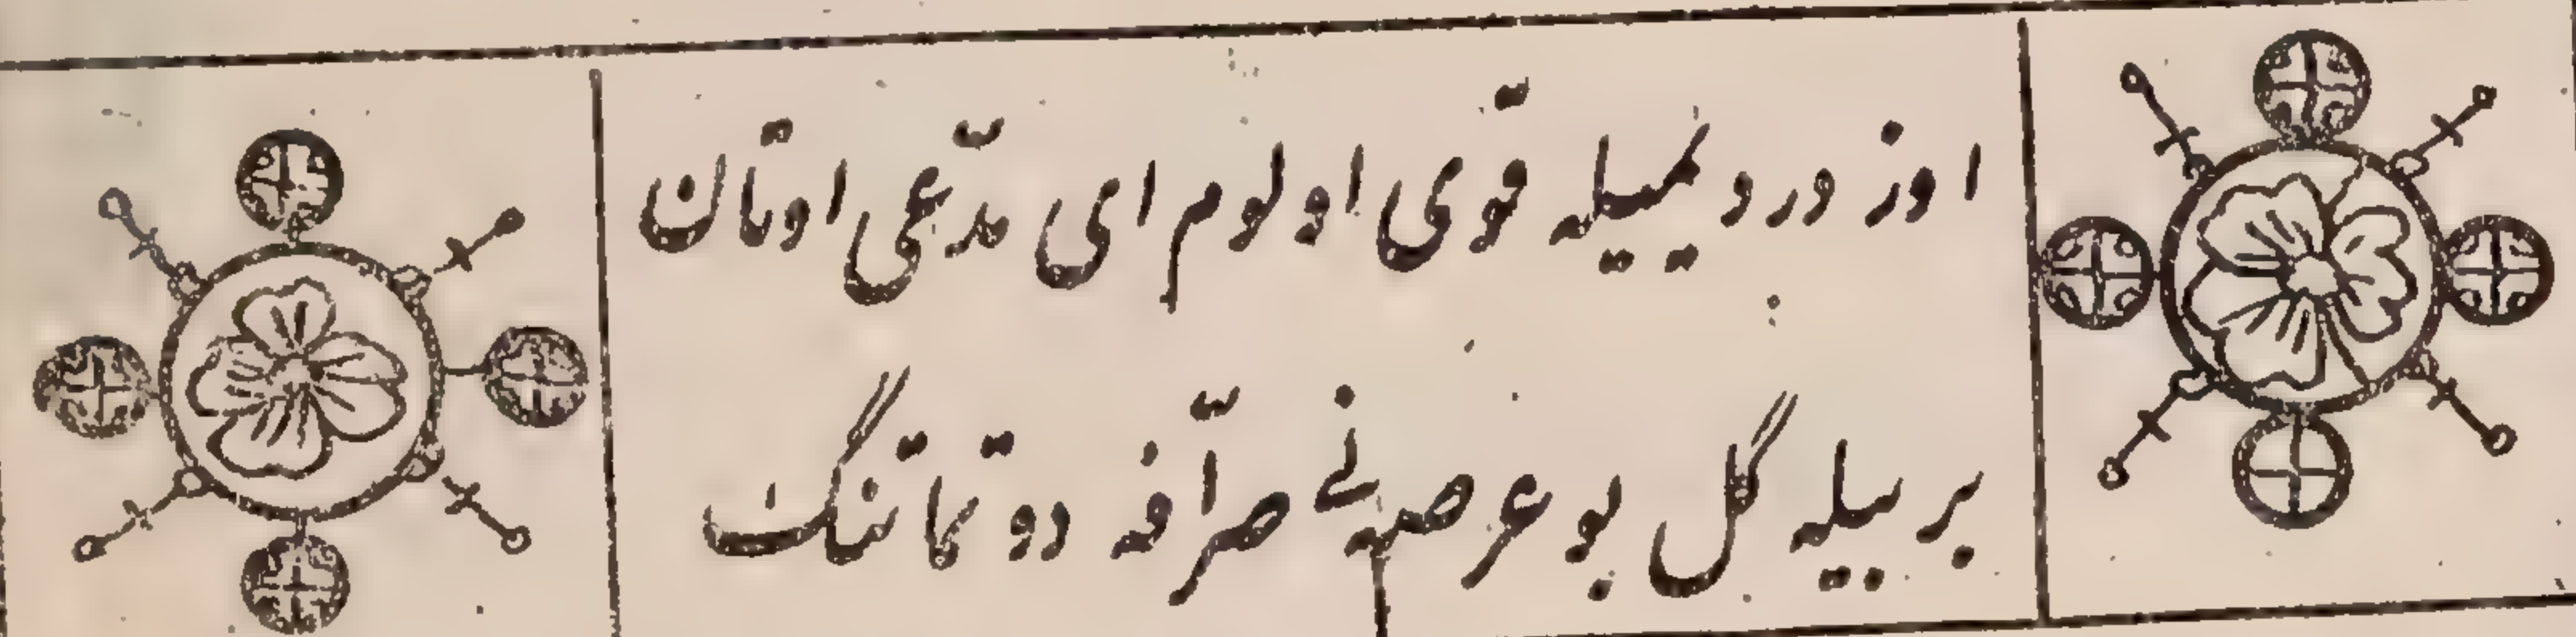 اوز دردیمیله قوی اولوم ای مدّعی اوتان
بر بیله گل بو عرصه‌نی صرّافه دوتما تنگ